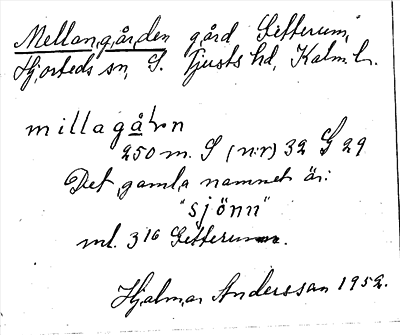 Mellangården gård Gitterum,
Hjorteds sn, S. Tjusts hd, Kalm. l.
millagå̱ɽn
250 m. S (n:r) 32 G 29
Det gamla namnet är:
"sjönn"
ml. 3¹⁶ Gitterum.
Hjalmar Andersson 1952.